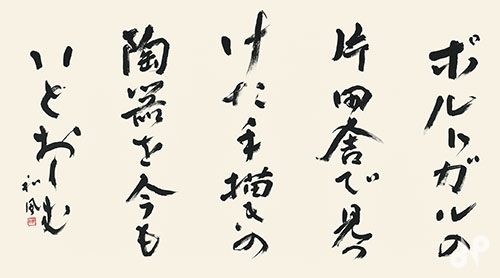 ポルトガルの
片田舎で見つ
けた手描きの
陶器を今も
いとおしむ
和風